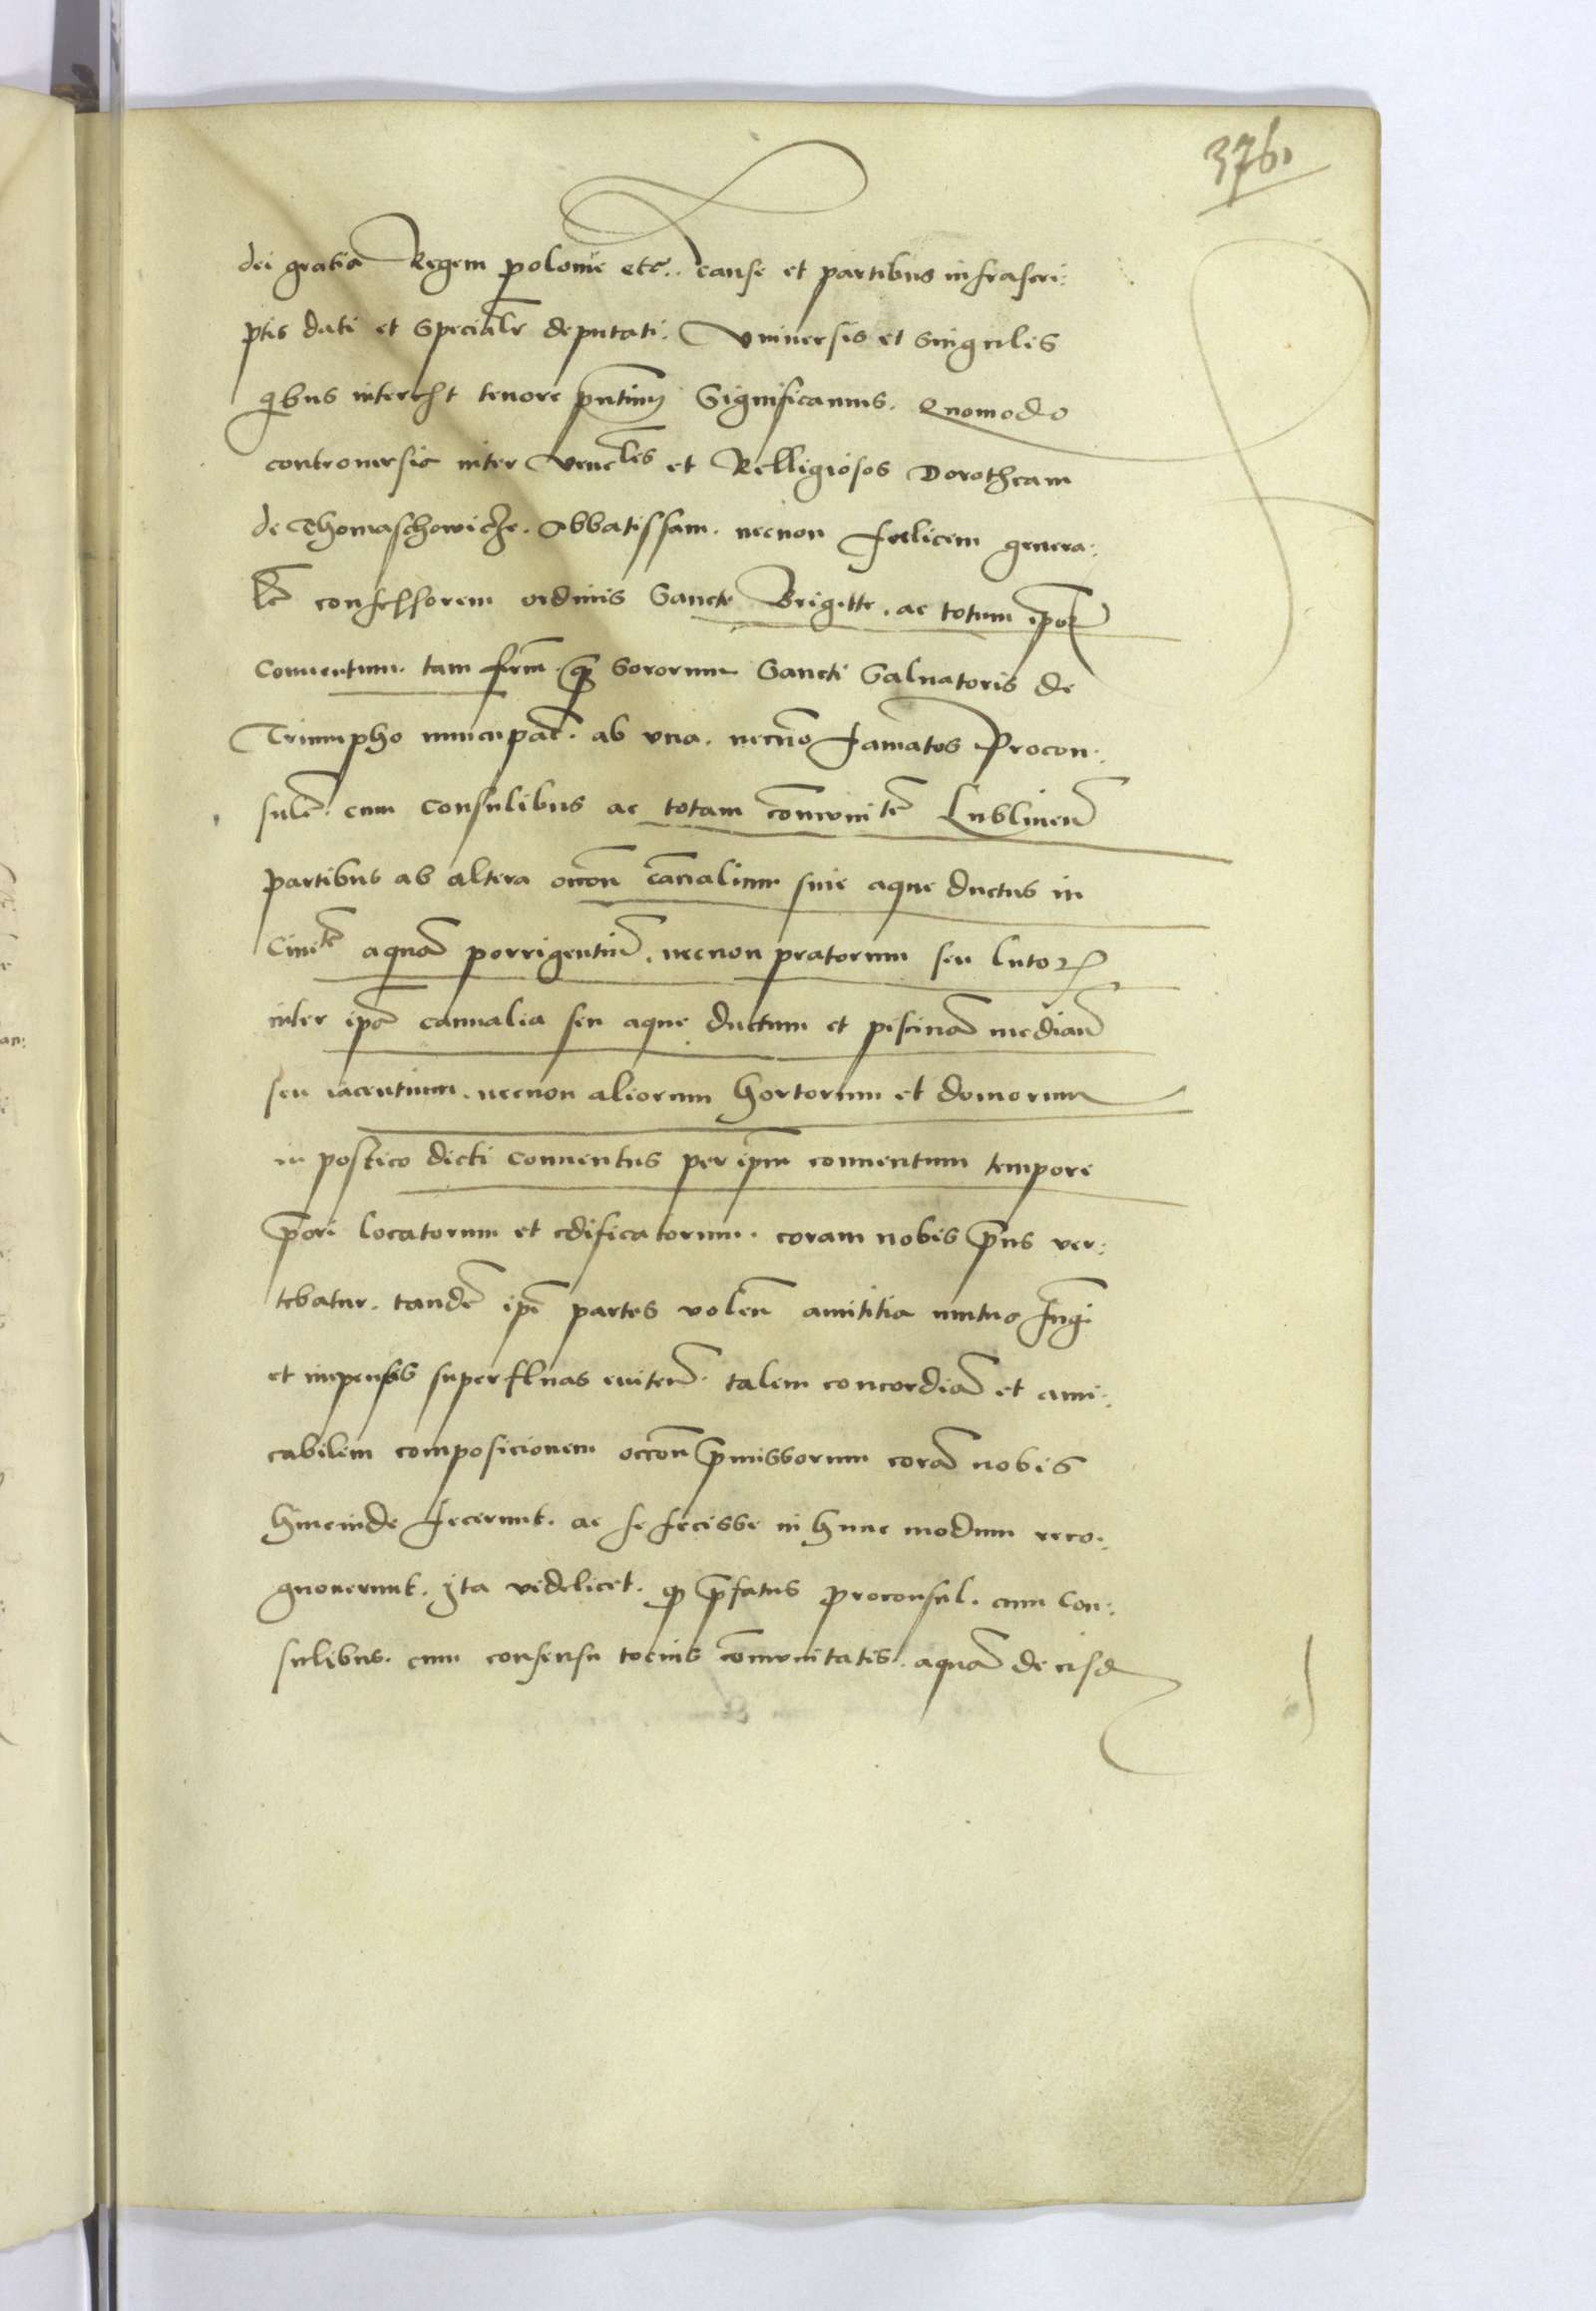 376
dei gratia Regem polonie etc̃.. cause et partibus infrascri:
ptis dati et Specialr̃ deputati. Vniuersis et Singulis
q̇bus interest tenore pñtium Significamus. Quomodo
controuersie inter Venerles et Relligiosos Dorotheam
de Thomaschowicze. Abbatissam. necnon foelicem genera:
lẽ confessorem ordinis Sancte Brigitte. ac totum ipoꝝ
Conuentum. tam frm̃ ꝙ̃ Sororum Sancti Saluatoris de
Triumpho nuncupat̃. ab vna. necnõ famatos Procon:
sulẽ. cum Consulibus ac totam cõmunitẽ Lublineñ
partibus ab altera occoñ cãnalium siue aque ductus in
Ciuitẽ aquã porrigentiũ. necnon pratorum seu lutoꝝ
inter ipã cannalia seu aque ductum et piscinã mediañ
seu iacentium. necnon aliorum hortorum et domorum
in postico dicti conuentus per ipm̃ conuentum tempore
p̃ori locatorum et edificatorum. coram nobis p̃us ver:
tebatur. tandẽ ipẽ partes voleñ amititia mutuo fungi
et impensis superfluas euiteñ. talem concordiã et ami:
cabilem composicionem occoñ p̃missorum corã nobis
hincinde fecerunt. ac se fecisse in hunc modum reco:
gnouerunt. Ita videlicet. ꝙ p̃fatus proconsul. cum Con:
sulibus. cum consensu tocius cõmunitatis. aquã de eisd